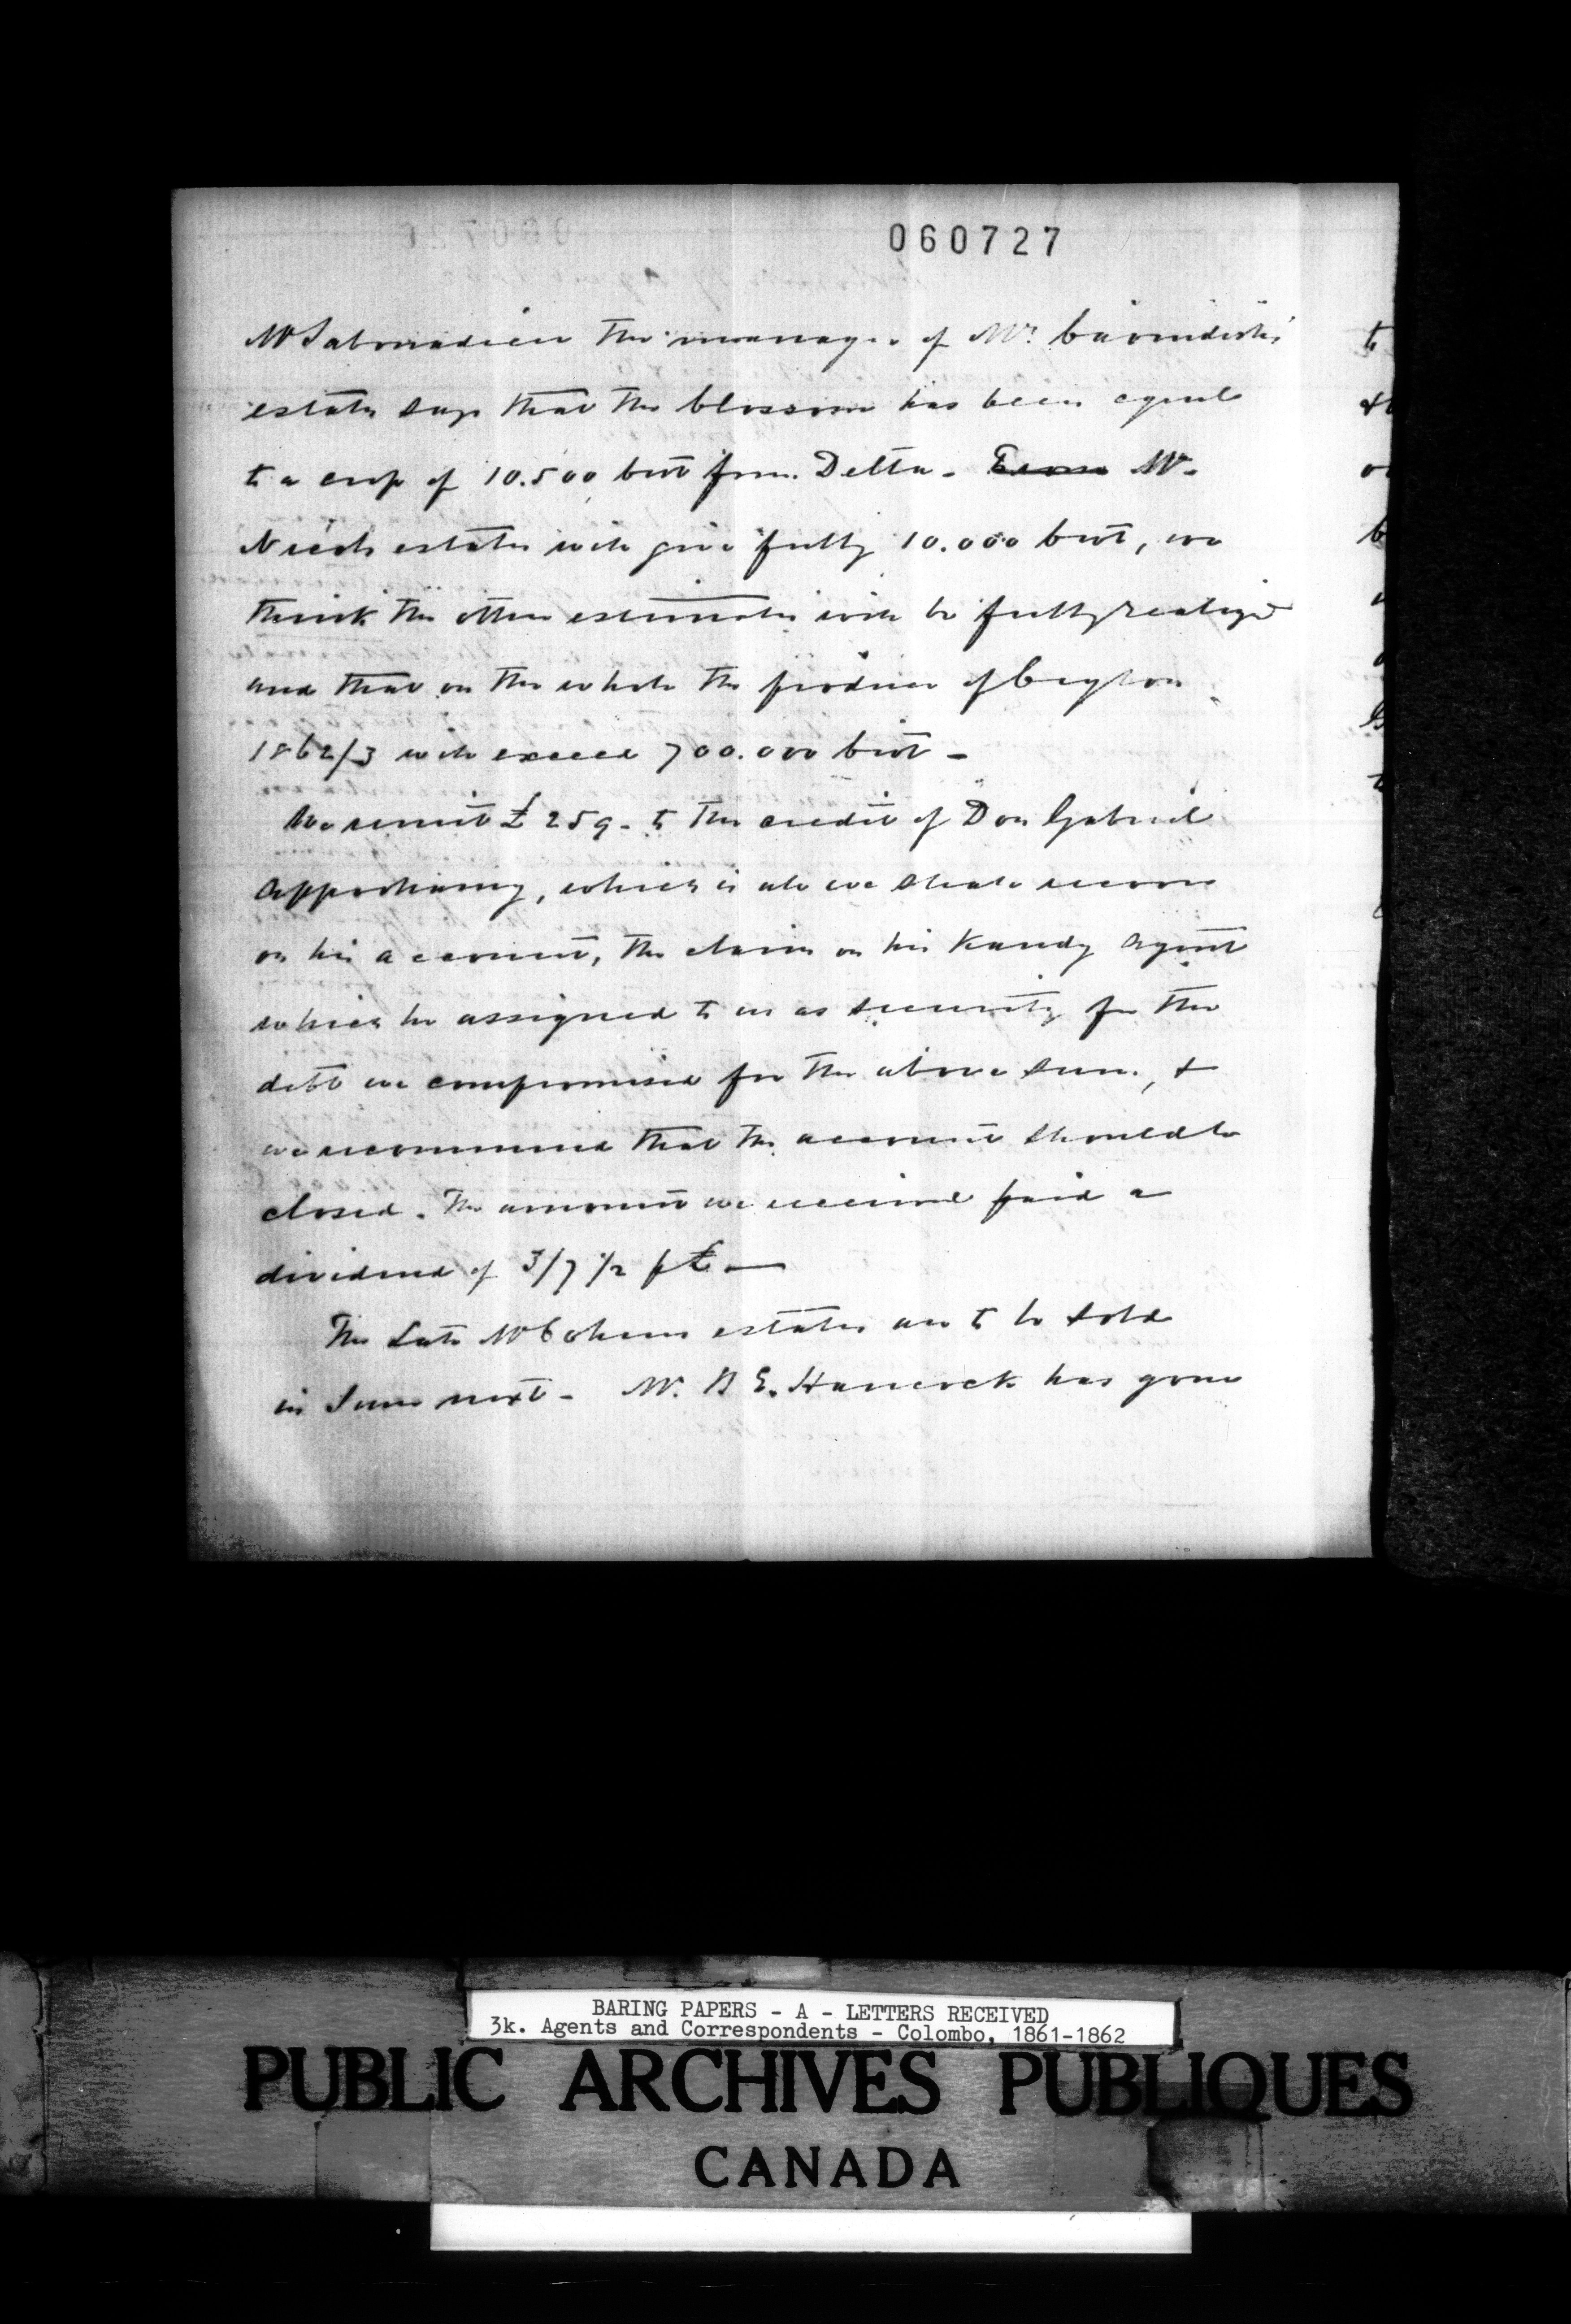 060727
Mr Sabonadiere the manager of Mr.
estates says that the blossom has been equal
to a crop of 10.500 cwt from Delta - From Mr.
estates will give fully 10.000 cwt, we
think the other estimates will be fully realized
and that on the whole the produce of Ceylon
1862/3 will exceed 700.000 cwt -
We remit £259 - to the credit of Don Gabriel
which is all we shall receive
on his account, the claim on his Kandy Agent
which he assigned to us as security for the
debt we compromised for the above sum, &
we recommend that the account should be
closed. The amount we received paid a
dividend of 3/7 1/2 p £ —
The Late Mr estates are to be sold
in June next - Mr. B E. Hancock has gone
BARING PAPERS - A - LETTERS RECEIVED
3k. Agents and Correspondents - Colombo, 1861-1862
PUBLIC ARCHIVES PUBLIQUES
CANADA